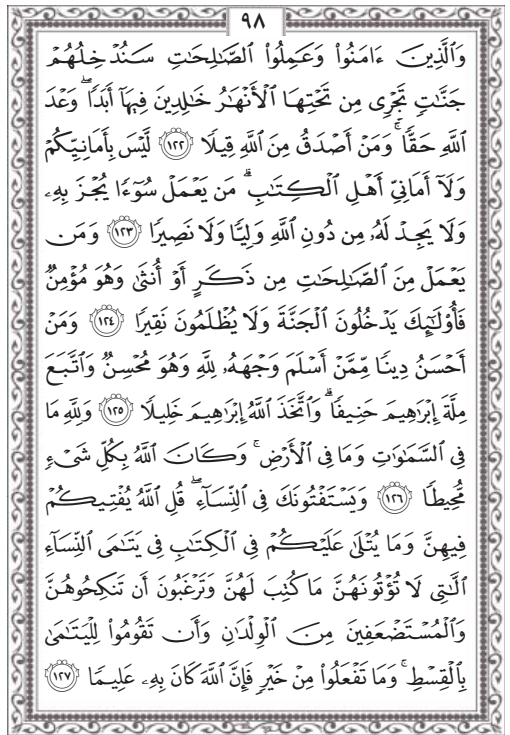 ٩٨
وَٱلَّذِينَ ءَامَنُوا۟ وَعَمِلُوا۟ ٱلصَّٰلِحَٰتِ سَنُدْخِلُهُمْ
جَنَّٰتٍ تَجْرِى مِن تَحْتِهَا ٱلْأَنْهَٰرُ خَٰلِدِينَ فِيهَآ أَبَدًا ۖ وَعْدَ
ٱللَّهِ حَقًّا ۚ وَمَنْ أَصْدَقُ مِنَ ٱللَّهِ قِيلًا ١٢٢ لَّيْسَ بِأَمَانِيِّكُمْ
وَلَآ أَمَانِىِّ أَهْلِ ٱلْكِتَٰبِ ۗ مَن يَعْمَلْ سُوٓءًا يُجْزَ بِهِۦ
وَلَا يَجِدْ لَهُۥ مِن دُونِ ٱللَّهِ وَلِيًّا وَلَا نَصِيرًا ١٢٣ وَمَن
يَعْمَلْ مِنَ ٱلصَّٰلِحَٰتِ مِن ذَكَرٍ أَوْ أُنثَىٰ وَهُوَ مُؤْمِنٌ
فَأُو۟لَٰٓئِكَ يَدْخُلُونَ ٱلْجَنَّةَ وَلَا يُظْلَمُونَ نَقِيرًا ١٢٤ وَمَنْ
أَحْسَنُ دِينًا مِّمَّنْ أَسْلَمَ وَجْهَهُۥ لِلَّهِ وَهُوَ مُحْسِنٌ وَٱتَّبَعَ
مِلَّةَ إِبْرَٰهِيمَ حَنِيفًا ۗ وَٱتَّخَذَ ٱللَّهُ إِبْرَٰهِيمَ خَلِيلًا ١٢٥ وَلِلَّهِ مَا
فِى ٱلسَّمَٰوَٰتِ وَمَا فِى ٱلْأَرْضِ ۚ وَكَانَ ٱللَّهُ بِكُلِّ شَىْءٍ
مُّحِيطًا ١٢٦ وَيَسْتَفْتُونَكَ فِى ٱلنِّسَآءِ ۖ قُلِ ٱللَّهُ يُفْتِيكُمْ
فِيهِنَّ وَمَا يُتْلَىٰ عَلَيْكُمْ فِى ٱلْكِتَٰبِ فِى يَتَٰمَى ٱلنِّسَآءِ
ٱلَّٰتِى لَا تُؤْتُونَهُنَّ مَا كُتِبَ لَهُنَّ وَتَرْغَبُونَ أَن تَنكِحُوهُنَّ
وَٱلْمُسْتَضْعَفِينَ مِنَ ٱلْوِلْدَٰنِ وَأَن تَقُومُوا۟ لِلْيَتَٰمَىٰ
بِٱلْقِسْطِ ۚ وَمَا تَفْعَلُوا۟ مِنْ خَيْرٍ فَإِنَّ ٱللَّهَ كَانَ بِهِۦ عَلِيمًا ١٢٧